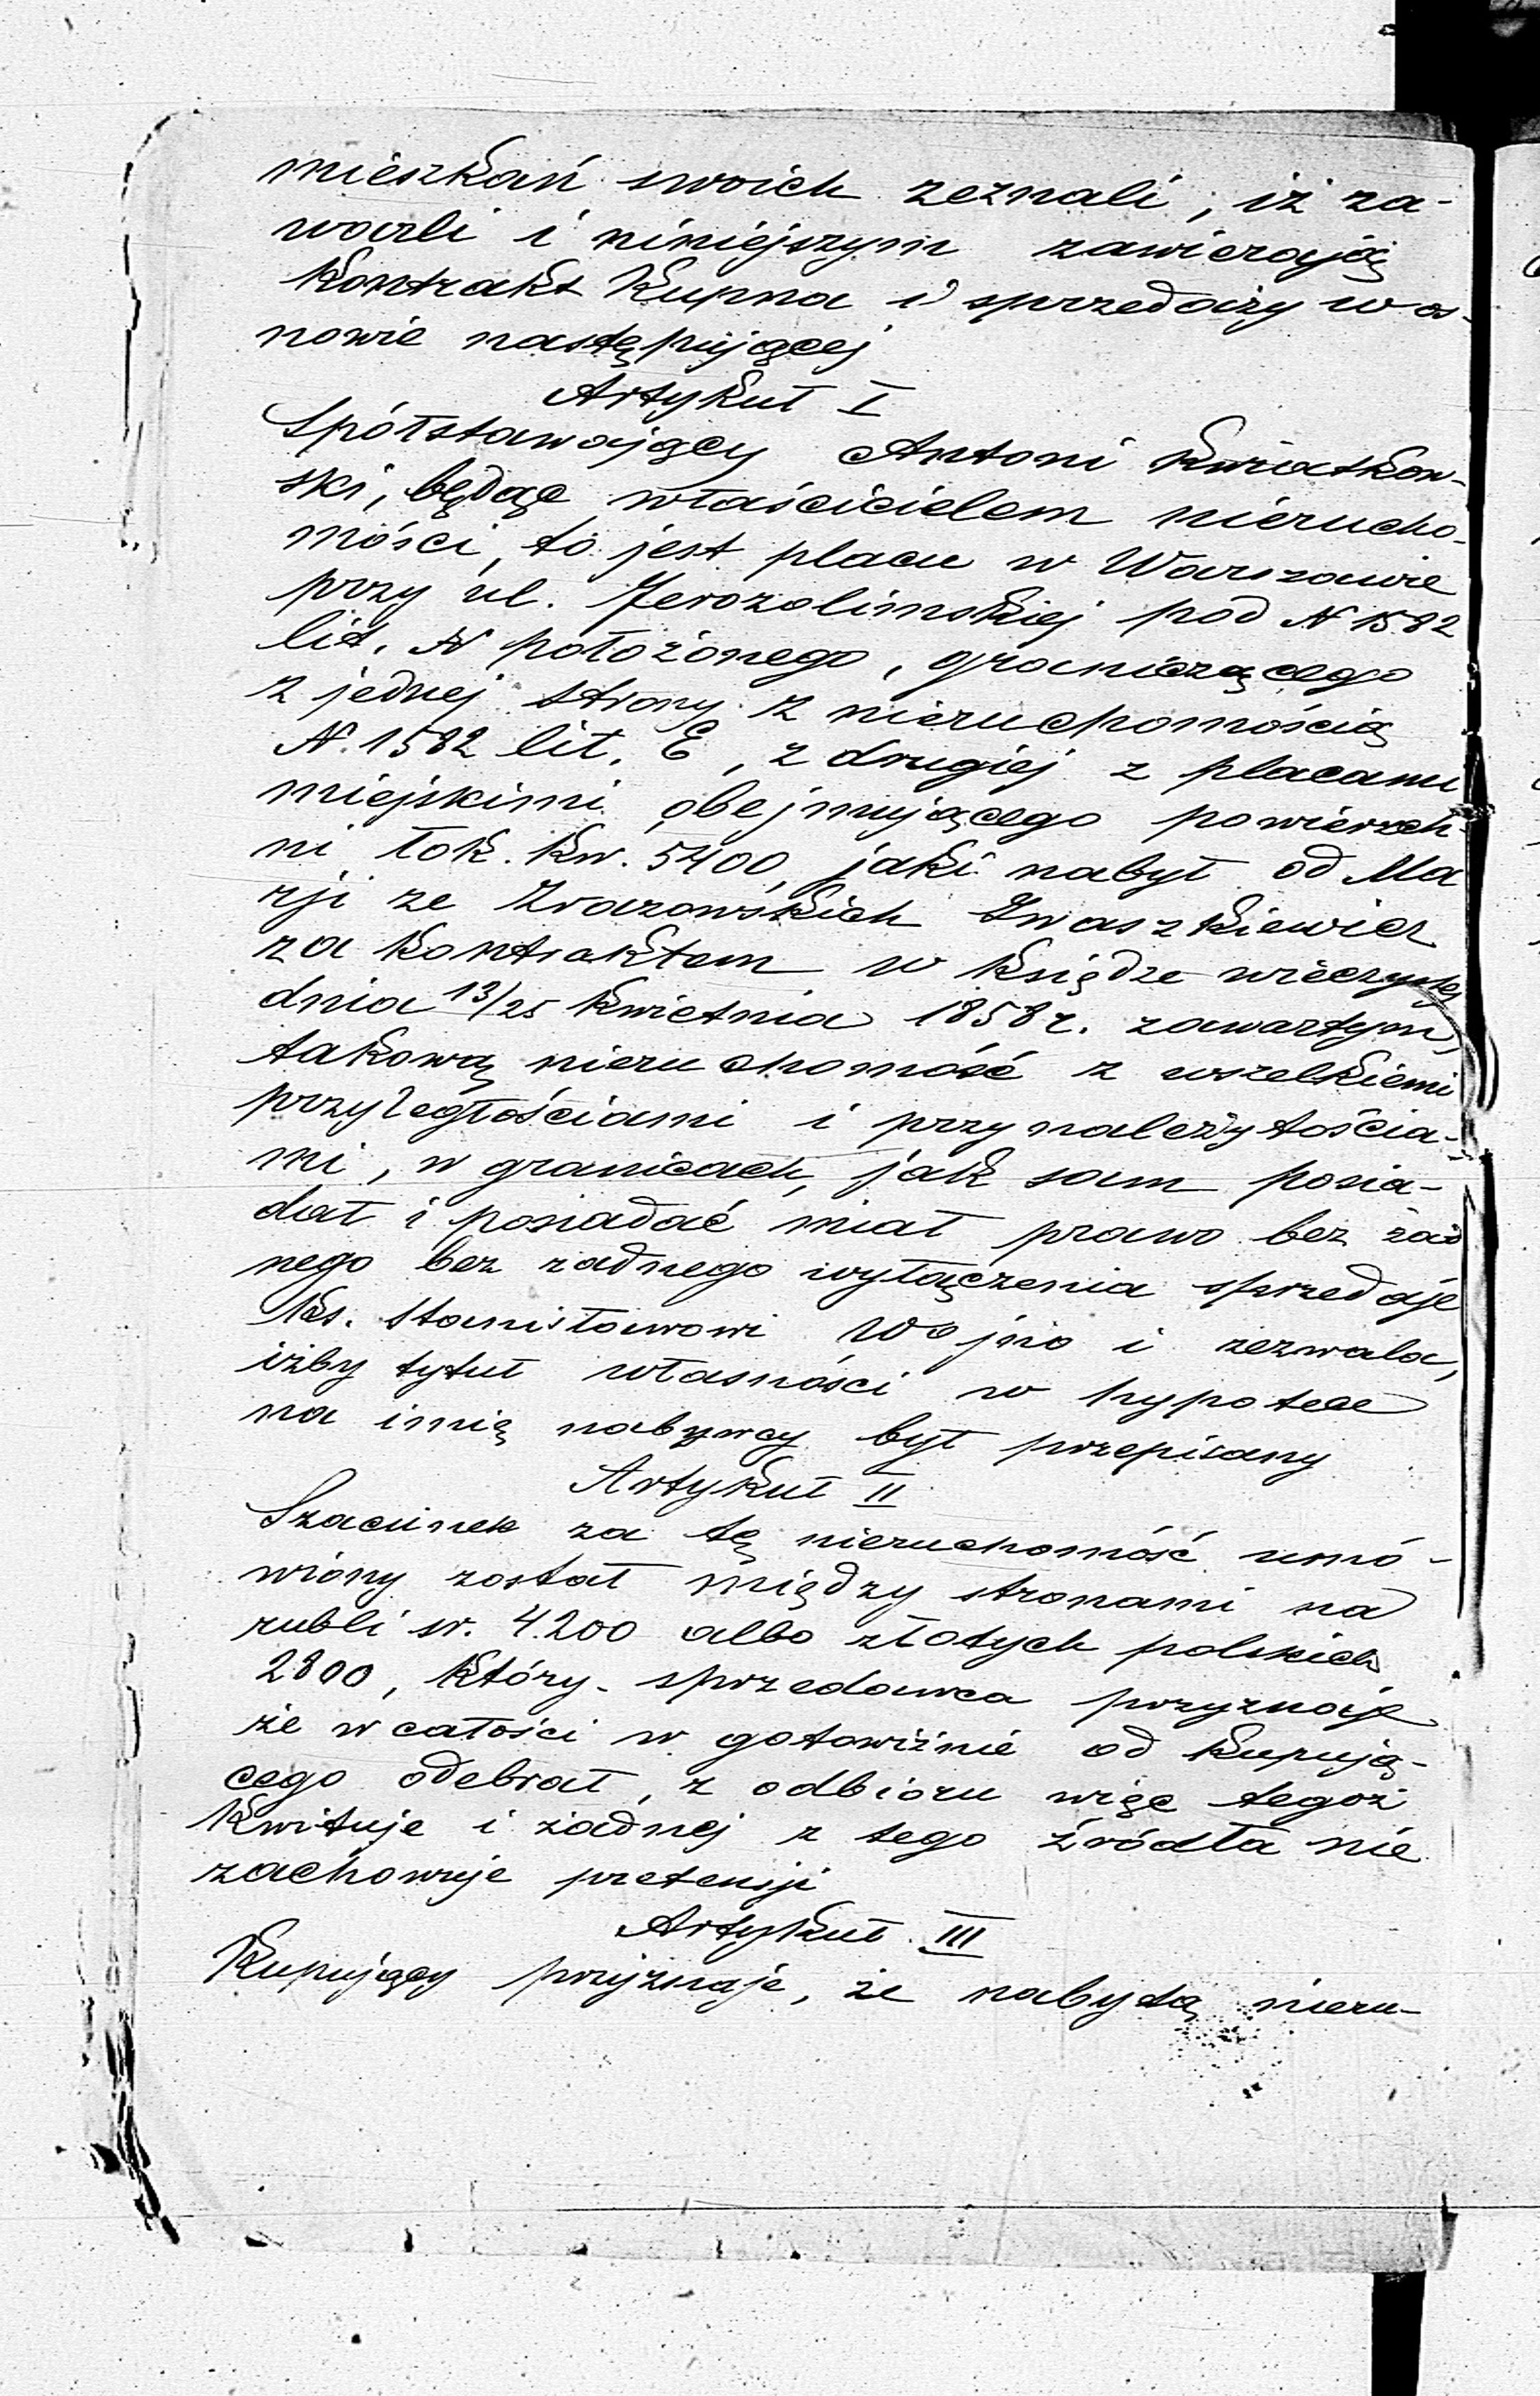 mieszkań swoich zeznali, iż za-
warli i niniejszym zawierają
Kontrakt Kupna i sprzedaży w os-
nowie następującej
Artykuł I
Spółstawający Antoni Kwiatkow-
ski, będąc właścicielem nierucho-
mości, to jest placu w Warszawie
przy ul. Jerozolimskiej pod N 1582
lit. N położonego, graniczącego
z jednej strony z nieruchomością
N. 1582 lit. E, z drugiej z placami
miejskimi obejmującego powierzch-
ni łok. kw. 5400, jaki nabył od Ma
rji ze Zrazowskich Iwaszkiewicz
za kontraktem w księdze wieczystej
dnia 13/25 Kwietnia 1858 r. zawartym,
takową nieruchomość z wszelkiemi
przyległościami i przynależytościa-
mi, w granicach, jak sam posia-
dał i posiadać miał prawo bez żad
nego bez żadnego wyłączenia sprzedaje
Ks. Stanisławowi Wojno i zezwala,
iżby tytuł własności w hypotece
na imię nabywcy był przepisany
Artykuł II
Szacunek za tę nieruchomość umó-
wiony został między stronami na
rubli sr. 4.200 albo złotych polskich
2800, który sprzedawca przyznaje
że w całości w gotowiźnie od Kupują-
cego odebrał, z odbioru więc tegoż
Kwituje i żadnej z tego źródła nie
zachowuje pretensji
Artykuł III
Kupujący przyznaje, że nabytą nieru-